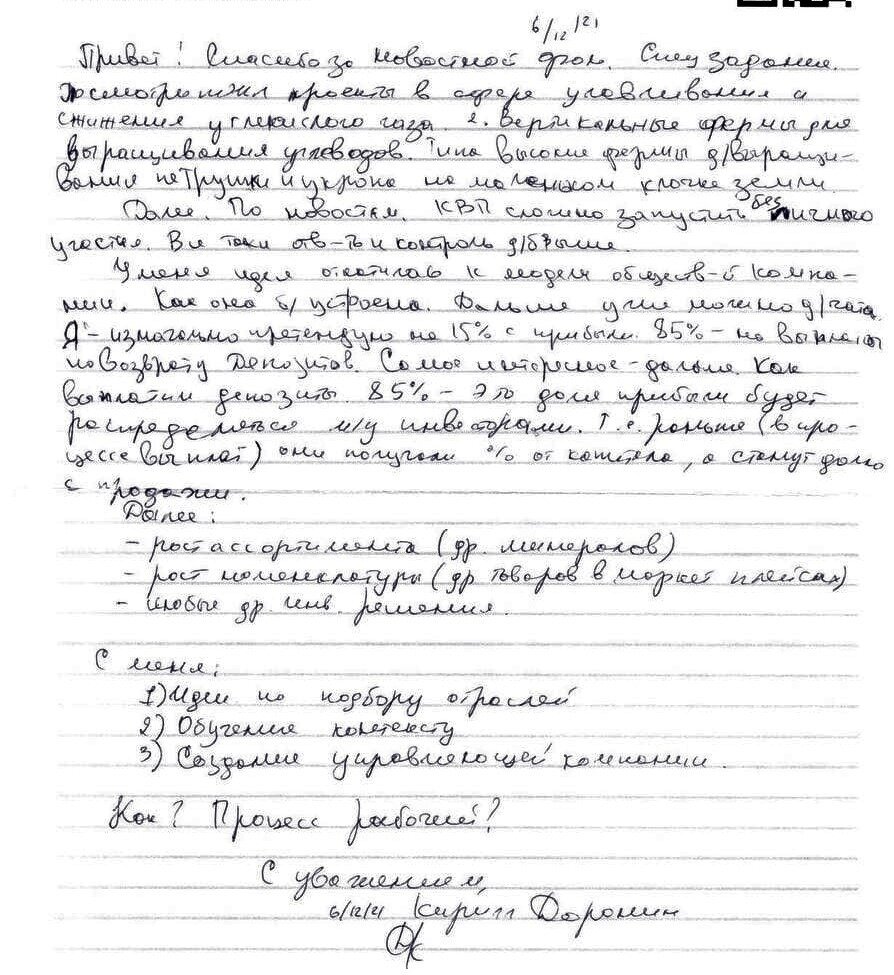 6/12/21
Привет! Спасибо за новостной фон. Спец задание.
Посмотри пжл проекты в сфере улавливания и
сжижения углекислого газа. 2. Вертикальные фермы для
выращивания углеводов. Типа высокие фермы д/выращи-
вания петрушки и укропа на маленьком клочке земли.
Далее. По новостям. КВП сложно запустить без личного
участия. Все таки отв-ть и контроль д/б выше.
У меня идея откатилась к модели обществ-й компа-
нии. Как она б/ устроена. Дальше уже можно д/
Я - изначально претендую на 15% с прибыли. 85% - на выплаты
по возврату депозитов. Самое интересное - дальше. Как
выплатим депозиты. 85% - это доля прибыли будет
распределяться м/у инвесторами. Т.е. раньше (в про-
цессе выплат) они получали % от капитала, а станут долю
с продажи.
Далее:
- рост ассортимента (др. минералов)
- рост номенклатуры (др товаров в маркет плейсах)
- любые др. инв. решения.
С меня:
1) Идеи по подбору отраслей
2) Обучение контексту
3) Создание управляющей компании.
Как? Процесс рабочий?
С уважением,
6/12/21 Кирилл Доронин